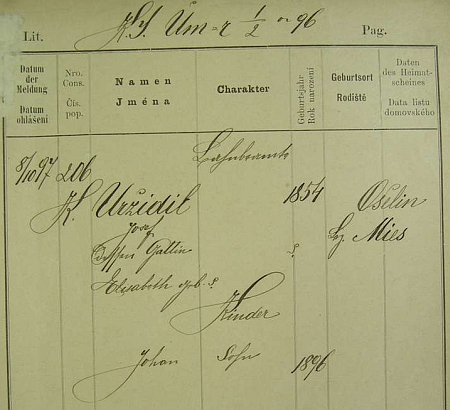 Lit.
Pag.
Datum der Meldung
Datum ohlášení
Nro. Cons.
Čís. pop.
Namen
Jména
Charakter
Geburtsjahr
Rok narození
Geburtsort
Rodiště
Daten des Heimat-scheines
Data listu domovského
8/10 97 206 Bahnbeamte
K. Uržidil 1854 Ošelin
Josef Bz. Mies
Dessen Gattin
Elisabeth geb.
Kinder
Johan Sohn 1896